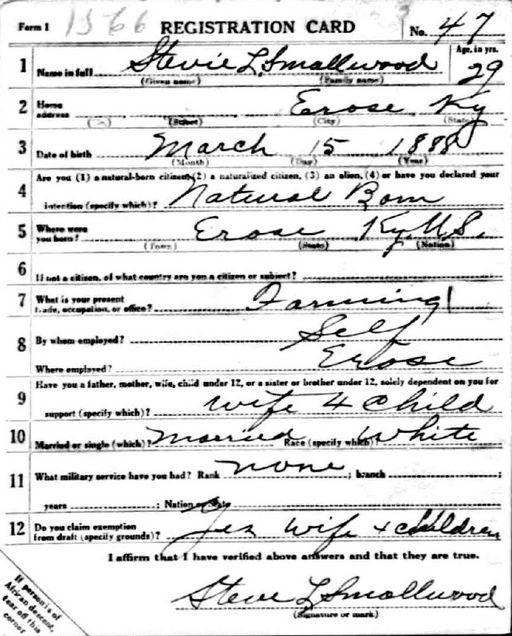 Form 1 1566 REGISTRATION CARD No. 47
1 Name in full Stevie L Smallwood Age, in yrs. 29
(Given name) (Family name)
2 Home address Erose Ky
(No.) (Street) (City) (State)
3 Date of birth March 15 1888
(Month) (Day) (Year)
4 Are you (1) a natural-born citizen, (2) a naturalized citizen, (3) an alien, (4) or have you declared your
intention (specify which)? Natural Born
5 Where were you born? Erose Ky U.S.
(Town) (State) (Nation)
6 If not a citizen, of what country are you a citizen or subject?
7 What is your present trade, occupation, or office? Farming
8 By whom employed? Self
Where employed? Erose
9 Have you a father, mother, wife, child under 12, or a sister or brother under 12, solely dependent on you for
support (specify which)? wife 4 child
10 Married or single (which)? Married Race (specify which)? White
11 What military service have you had? Rank none ; branch
years ; Nation or State
12 Do you claim exemption from draft (specify grounds)? Yes wife + children
I affirm that I have verified above answers and that they are true.
Stevie L Smallwood
(Signature or mark)
If person is of
African descent,
tear off this
corner